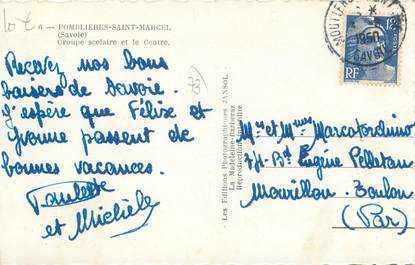 POMBLIERES-SAINT-MARCEL
(Savoie)
Groupe scolaire et le Centre.
73
Recevez nos bons
baisers de Savoie.
J'espère que Félise et
Yvonne passent de
bonnes vacances.
Paulette
et Michèle
- Les Editions Photographiques JANSOL -
La Madeleine-Barberaz
Reproduction interdite
MOUTIERS
1950
SAVOIE
12F
RF
Mr et Mme Marcafordino
Bd Eugène Pelletan
Mourillon - Toulon
(Var)